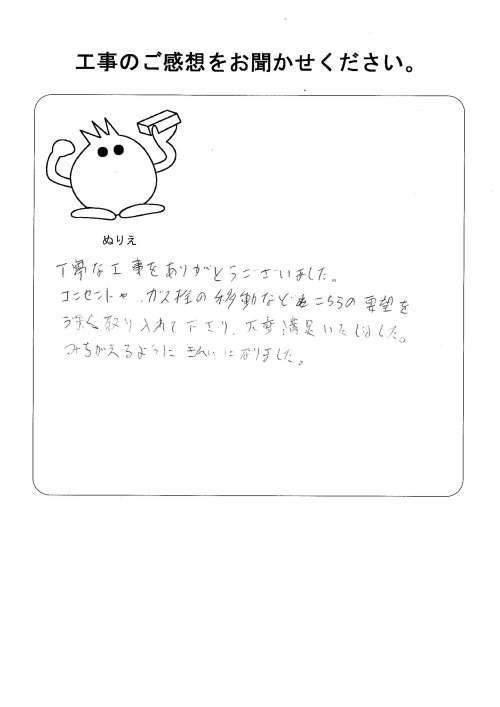 工事のご感想をお聞かせください。
ぬりえ
丁寧な工事をありがとうございました。
コンセントや、ガス栓の移動など こちらの要望を
快く取り入れて下さり、大変満足いたしました。
みちがえるように きれいになりました。